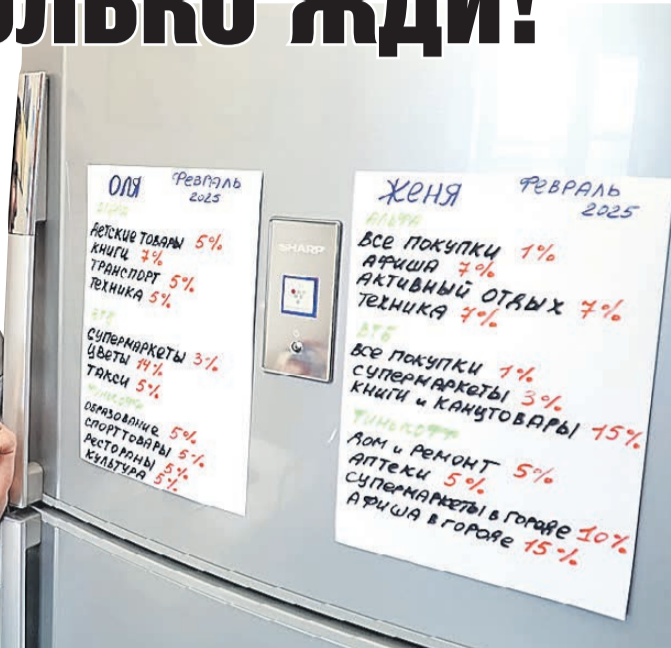 ОЛЬКО ЖДИ!
ОЛЯ ФЕВРАЛЬ
2025
АЛЬФА
ДЕТСКИЕ ТОВАРЫ 5%
КНИГИ 7%
ТРАНСПОРТ 5%
ТЕХНИКА 5%
ВТБ
СУПЕРМАРКЕТЫ 3%
ЦВЕТЫ 14%
ТАКСИ 5%
ТИНЬКОФФ
ОБРАЗОВАНИЕ 5%
СПОРТТОВАРЫ 5%
РЕСТОРАНЫ 5%
КУЛЬТУРА 5%
SHARP
ЖЕНЯ ФЕВРАЛЬ
2025
АЛЬФА
ВСЕ ПОКУПКИ 1%
АФИША 7%
АКТИВНЫЙ ОТДЫХ 7%
ТЕХНИКА 7%
ВТБ
ВСЕ ПОКУПКИ 1%
СУПЕРМАРКЕТЫ 3%
КНИГИ и КАНЦТОВАРЫ 15%
ТИНЬКОФФ
ДОМ и РЕМОНТ 5%
АПТЕКИ 5%
СУПЕРМАРКЕТЫ В ГОРОДЕ 10%
АФИША В ГОРОДЕ 15%